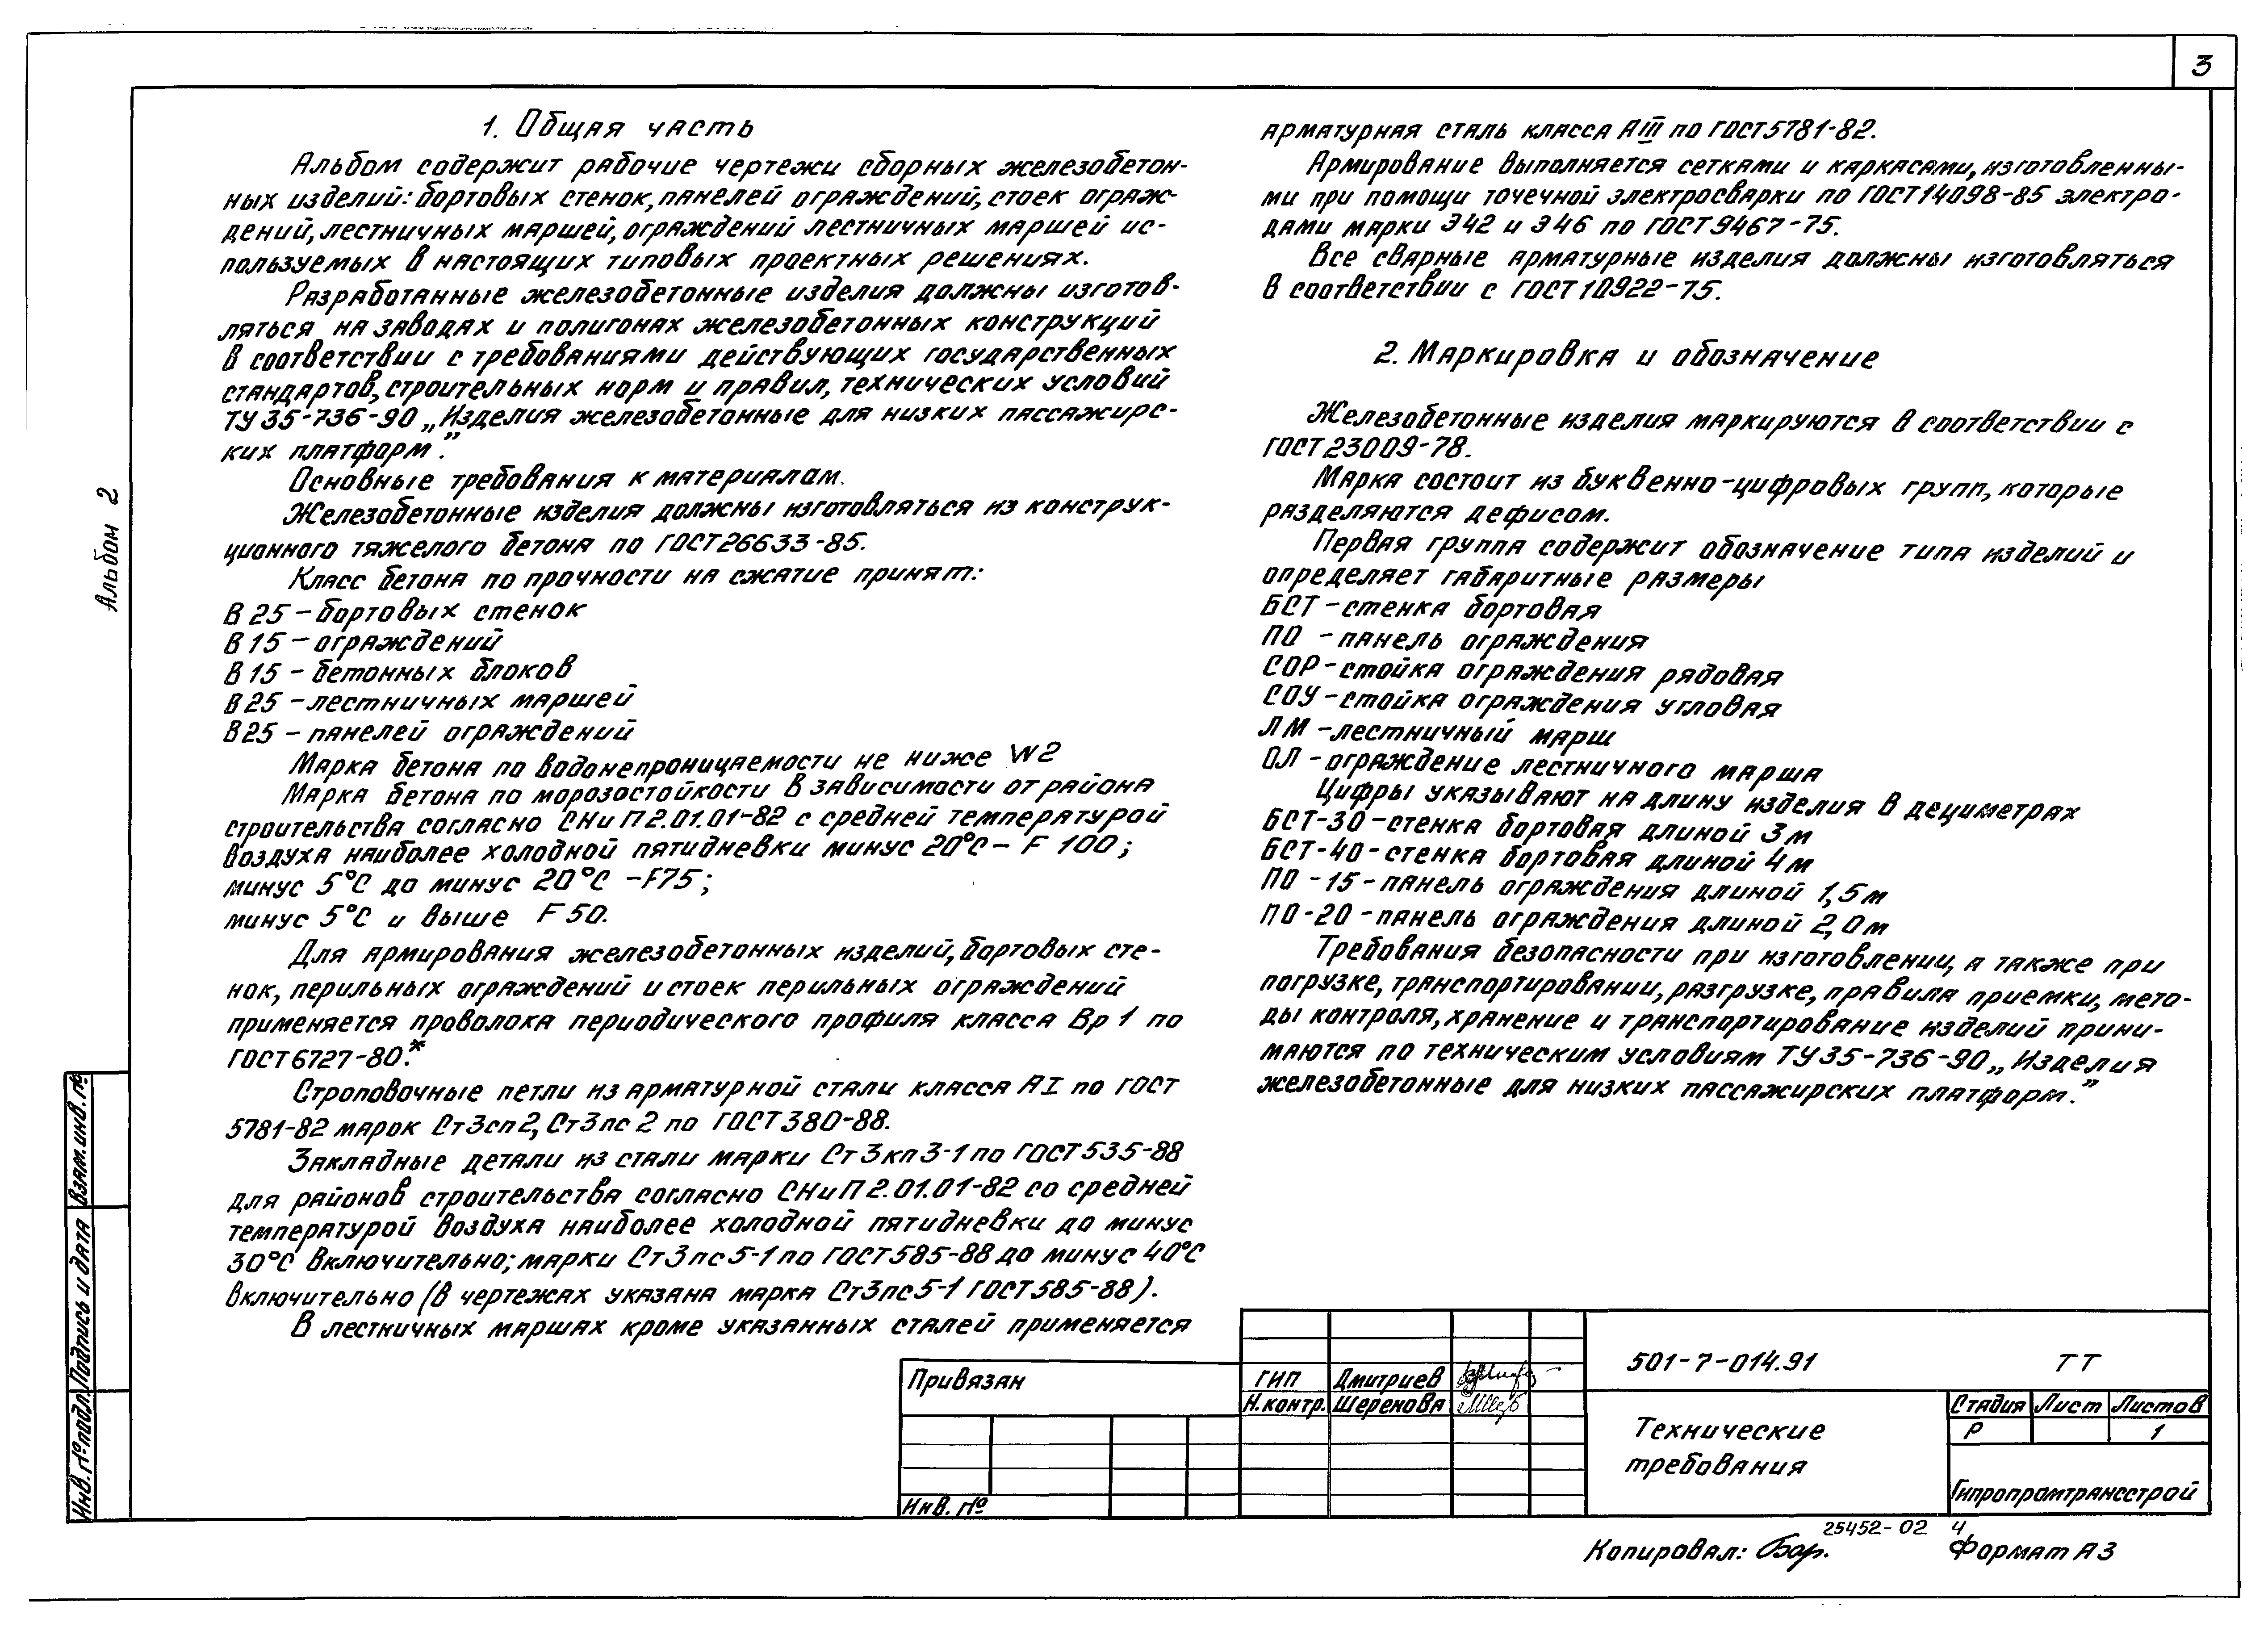 3
1. Общая часть
Альбом содержит рабочие чертежи сборных железобетон-
ных изделий: бортовых стенок, панелей ограждений, стоек ограж-
дений, лестничных маршей, ограждений лестничных маршей ис-
пользуемых в настоящих типовых проектных решениях.
Разработанные железобетонные изделия должны изготов-
ляться на заводах и полигонах железобетонных конструкций
в соответствии с требованиями действующих государственных
стандартов, строительных норм и правил, технических условий
ТУ 35-736-90 „Изделия железобетонные для низких пассажирс-
ких платформ”.
Основные требования к материалам.
Железобетонные изделия должны изготовляться из конструк-
ционного тяжелого бетона по ГОСТ 26633-85.
Класс бетона по прочности на сжатие принят:
В 25 – бортовых стенок
В 15 – ограждений
В 15 – бетонных блоков
В 25 – лестничных маршей
В 25 – панелей ограждений
Марка бетона по водонепроницаемости не ниже W2
Марка бетона по морозостойкости в зависимости от района
строительства согласно СНиП 2.01.01-82 с средней температурой
воздуха наиболее холодной пятидневки минус 20°С – F 100;
минус 5°С до минус 20°С – F75;
минус 5°С и выше F 50.
Для армирования железобетонных изделий, бортовых сте-
нок, перильных ограждений и стоек перильных ограждений
применяется проволока периодического профиля класса Вр 1 по
ГОСТ 6727-80.*
Строповочные петли из арматурной стали класса АI по ГОСТ
5781-82 марок Ст3сп2, Ст3пс 2 по ГОСТ 380-88.
Закладные детали из стали марки Ст3кп3-1 по ГОСТ 535-88
для районов строительства согласно СНиП 2.01.01-82 со средней
температурой воздуха наиболее холодной пятидневки до минус
30°С включительно; марки Ст3пс5-1 по ГОСТ 585-88 до минус 40°С
включительно (в чертежах указана марка Ст3пс5-1 ГОСТ 585-88).
В лестничных маршах кроме указанных сталей применяется
арматурная сталь класса АIII по ГОСТ 5781-82.
Армирование выполняется сетками и каркасами, изготовленны-
ми при помощи точечной электросварки по ГОСТ 14098-85 электро-
дами марки Э42 и Э46 по ГОСТ 9467-75.
Все сварные арматурные изделия должны изготовляться
в соответствии с ГОСТ 10922-75.
2. Маркировка и обозначение
Железобетонные изделия маркируются в соответствии с
ГОСТ 23009-78.
Марка состоит из буквенно-цифровых групп, которые
разделяются дефисом.
Первая группа содержит обозначение типа изделий и
определяет габаритные размеры
БСТ – стенка бортовая
ПО – панель ограждения
СОР – стойка ограждения рядовая
СОУ – стойка ограждения угловая
ЛМ – лестничный марш
ОЛ – ограждение лестничного марша
Цифры указывают на длину изделия в дециметрах
БСТ-30 – стенка бортовая длиной 3м
БСТ-40 – стенка бортовая длиной 4м
ПО - 15 – панель ограждения длиной 1,5м
ПО - 20 – панель ограждения длиной 2,0м
Требования безопасности при изготовлении, а также при
погрузке, транспортировании, разгрузке, правила приемки, мето-
ды контроля, хранение и транспортирование изделий прини-
маются по техническим условиям ТУ 35-736-90 „Изделия
железобетонные для низких пассажирских платформ.”
Альбом 2
Взам. инв. №
Подпись и дата
Инв. № подл.
Привязан
Инв. №
ГИП Дмитриев
Н. контр. Шеренова
501-7-014.91 ТТ
Технические
требования
Стадия Лист Листов
Р 1
Гипропромтрансстрой
25452-02 4
Копировал: Бар. Формат А3